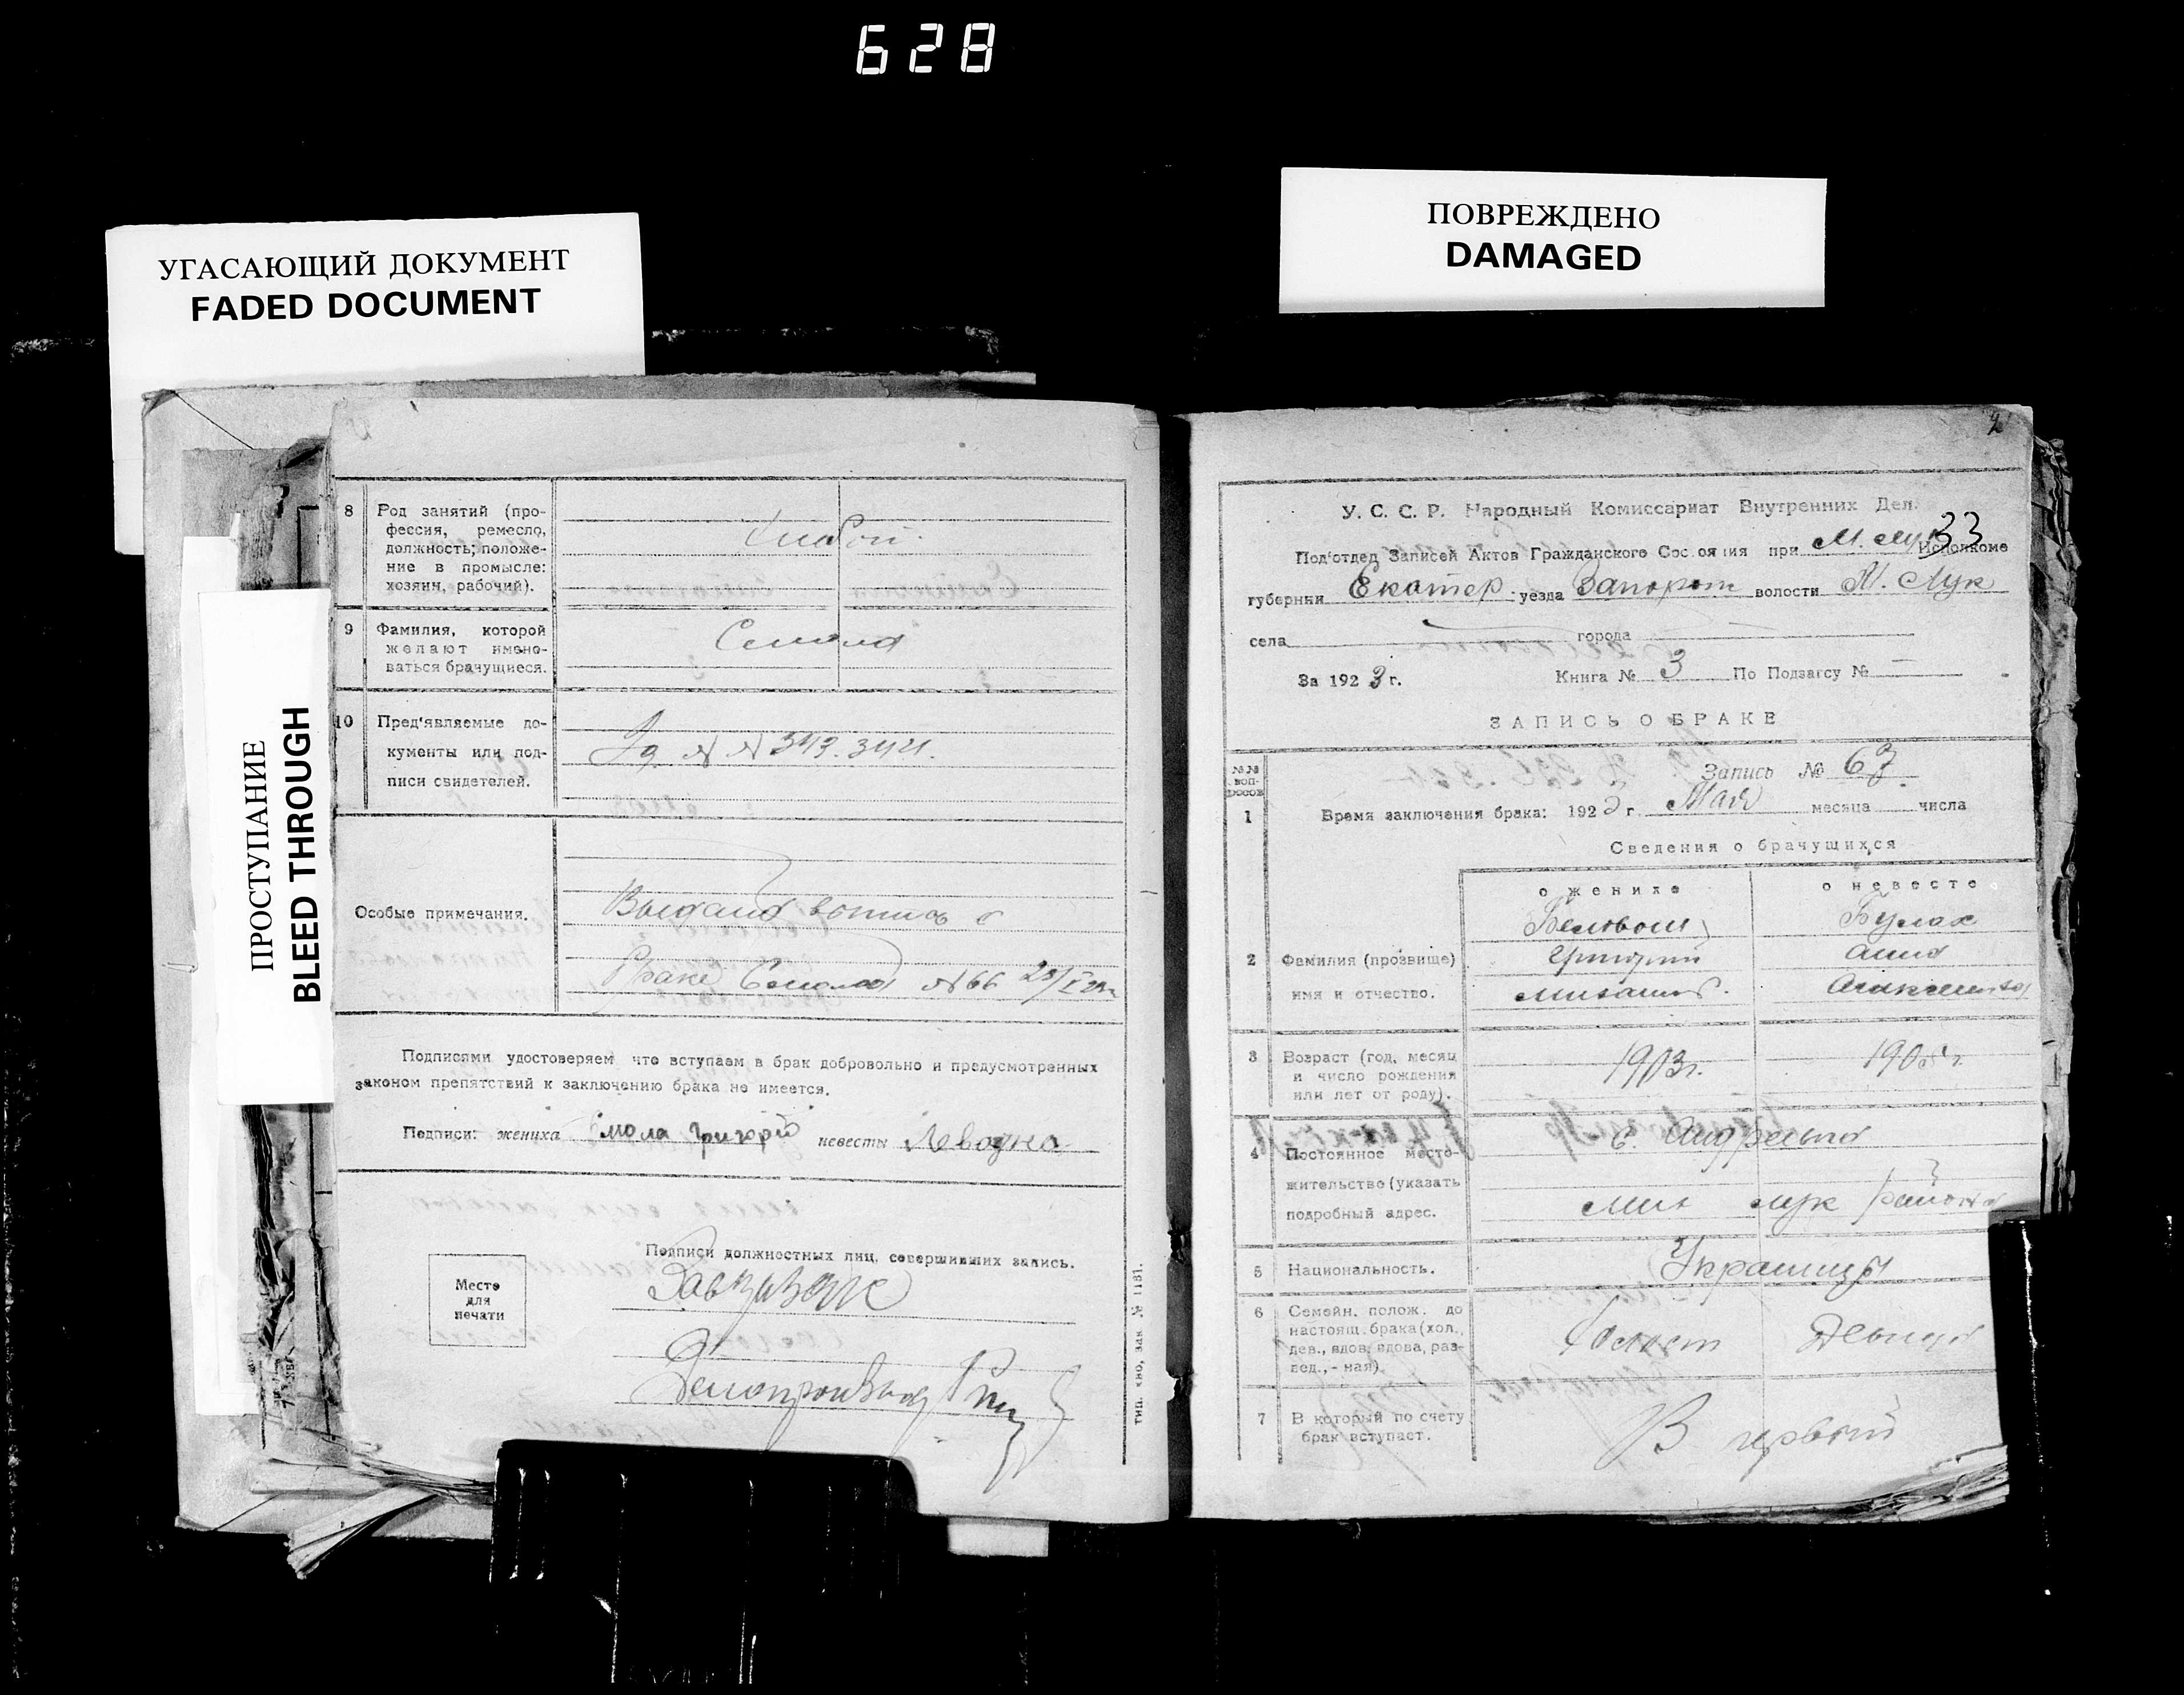 628
УГАСАЮЩИЙ ДОКУМЕНТ
FADED DOCUMENT
ПОВРЕЖДЕНО
DAMAGED
ПРОСТУПАНИЕ
BLEED THROUGH
8 Род занятий (про-
фессия, ремесло,
должность; положе-
ние в промысле:
хозяин, рабочий).
9 Фамилия, которой
желают имено-
ваться брачущиеся.
10 Пред'являемые до-
кументы или под-
писи свидетелей.
Уд. N N 343. 3421.
Особые примечания.
Выдана выпись о
Браке Смола N 66
Подписями удостоверяем, что вступаем в брак добровольно и предусмотренных
законом препятствий к заключению брака не имеется.
Подписи: жениха Смола Григорій невесты Леводна
Подписи должностных лиц, совершивших запись.
Место
для
печати
Завзагс
Делопроизвод
№ 1181.
2
У. С. С. Р. Народный Комиссариат Внутренних Дел.
33
Под'отдел Записей Актов Гражданского Состояния при М. Лук Исполкоме
губернии Екатер уезда Запорож волости М. Лук
села города
За 1923 г. Книга № 3 По Подзагсу № —
ЗАПИСЬ О БРАКЕ
№№ воп-росов
Запись № 67
1 Время заключения брака: 1923 г. Мая месяца числа
Сведения о брачущихся
о женихе о невесте
Белов Булах
2 Фамилия (прозвище) Григорий Анна
имя и отчество.
3 Возраст (год, месяц
и число рождения
или лет от роду).
1903 г. 1905 г.
4 Постоянное место-
жительство (указать
подробный адрес.
с. Андреевка
Мих Лук района
5 Национальность. Украинцы
6 Семейн. полож. до
настоящ. брака (хол.,
дев., вдов, вдова, раз-
вед., - ная).
Холост Девица
7 В который по счету
брак вступает.
В первый